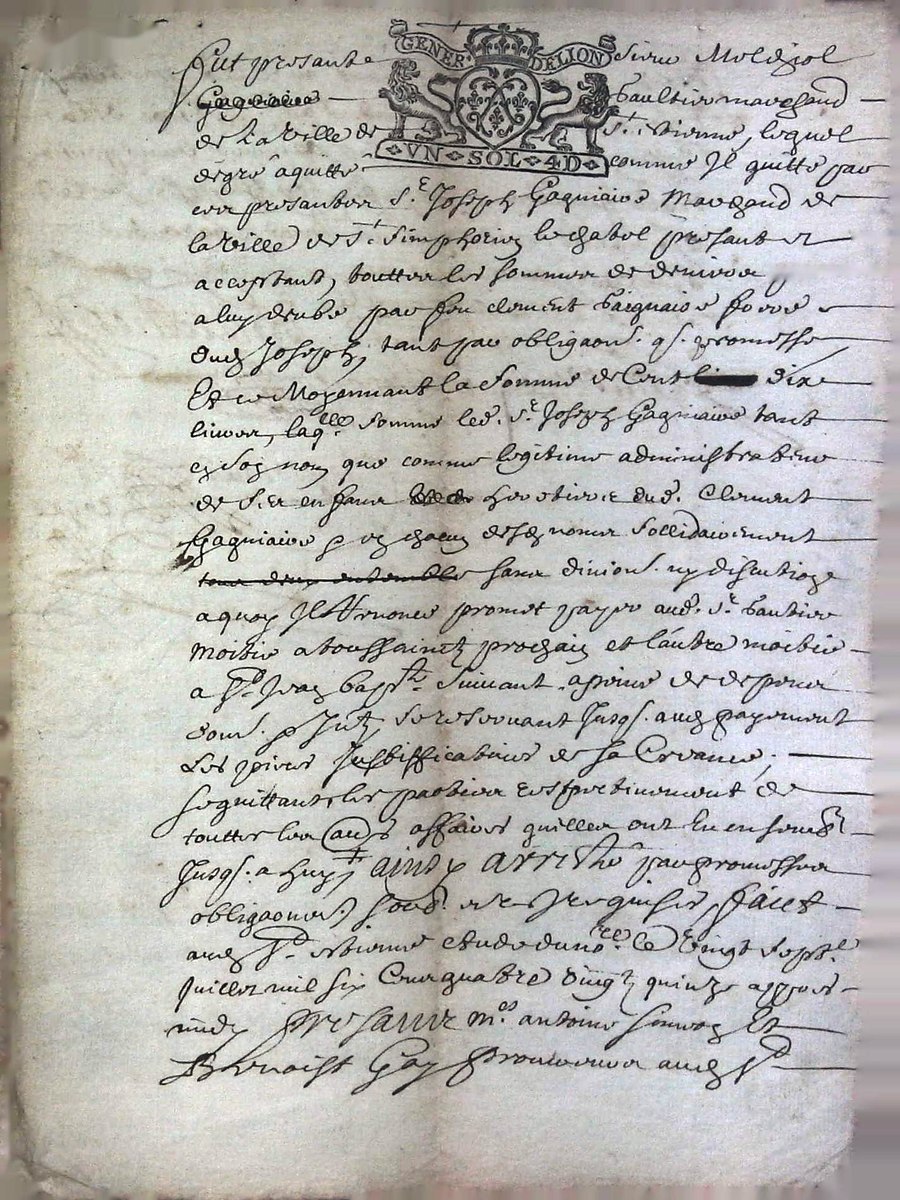 GENER. DELION
VN SOL 4D
Fut presante sieur Melchiol
Gagniaire Gaultier marchand
de La Ville de St. Estienne, lequel
de gré a quitté comme Il quitte par
ces presantes Sr. Joseph Gagniaire Marchand de
la ville de St. Simphorien le chatel presant et
acceptant, touttes les sommes de deniers
a luy deubs par feu Clement Gaigniaire frere
dud Joseph, tant par obligaons. qs. promesse
Et ce Moyennant la somme de Cent dix
livres, laqlle somme led. Sr. Joseph Gagniaire tant
en son nom que comme legitime administrateur
de ses enfans heretiers dud. Clement
Gagniaire p en chacun desd noms sollidairement
tous deux ensemble sans divion. ny discution
a quoy Il renonce promet payer aud. Sr. Gautier
Moitié a toussainct prochain et l'autre moitié
a St Jean bapte. suivant a peine de despens
se reservant Jusqs. aud payement
Les pieces Justifficatives de sa Creance,
se quittants les parties respectivement de
touttes les aues affaires quilles ont Eu ensemble
Jusqs. a huy ainsy arresté par promesses
obligaons soubs. et requises, faict
aud St. Estienne etude du nore. le vingt sept
Juillet mil six Cens quatre vingt quinze appres
midy presans mes antoine et
Benoist Gay aud St